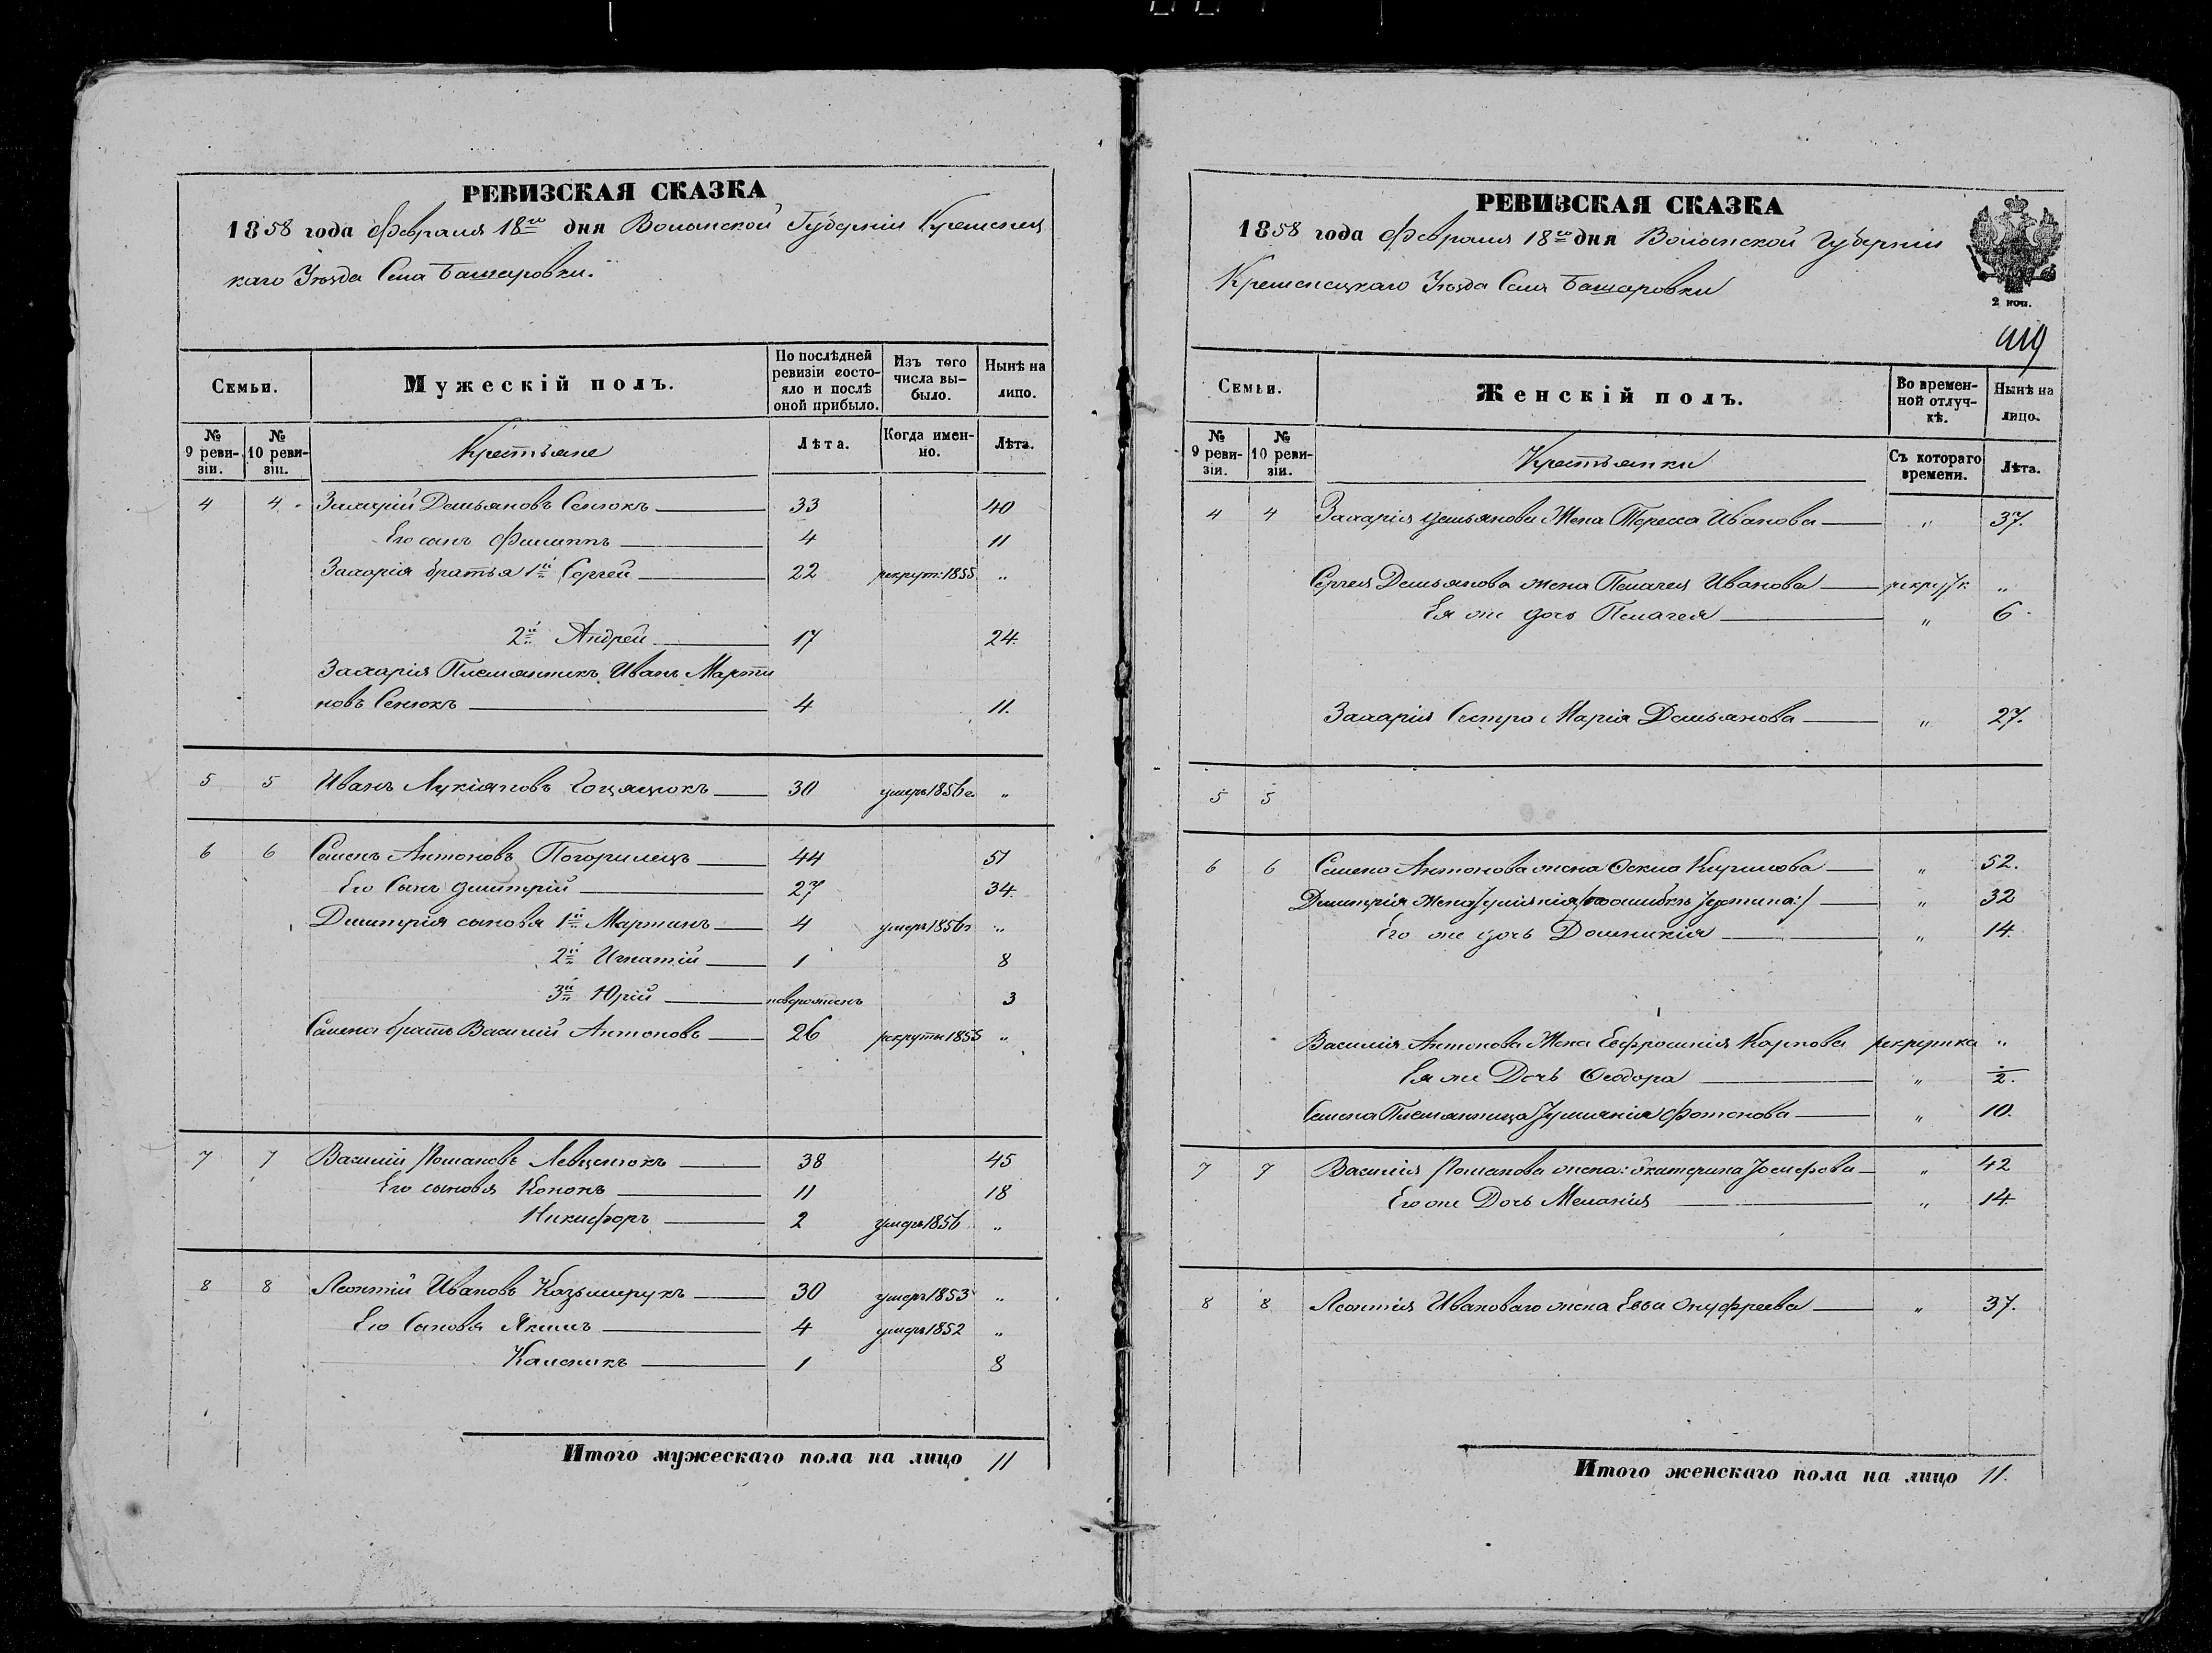 РЕВИЗСКАЯ СКАЗКА
1858 года Февраля 18го дня Волынской Губерніи Кременец
каго Уѣзда Села Башаровки.
Семьи.
Мужескій полъ.
По послѣдней ревизіи состояло и послѣ оной прибыло.
Изъ того числа выбыло.
Нынѣ на лицо.
№ 9 ревизіи.
№ 10 ревизіи.
Крестьяне
Лѣта.
Когда именно.
Лѣта.
4 4 Захарій Демьяновъ Сенюкъ 33 40
Его сынъ Филиппъ 4 11
Захарія братья 1й Сергей 22 рекрут: 1855 "
2й Андрей 17 24.
Захарія Племянникъ Иванъ Марти
новъ Сенюкъ 4 11.
5 5 Иванъ Лукіяновъ 30 умеръ 1856 г. "
6 6 Семенъ Антоновъ Погорилецъ 44 51
Его Сынъ Дмитрій 27 34.
Дмитрія сыновья 1й Мартинъ 4 умеръ 1856 "
2й Игнатій 1 8
3й Юрій новорожденъ 3
Семена братъ Василій Антоновъ 26 рекруты 1855 "
7 7 Василій Романовъ Левценюкъ 38 45
Его сыновья Кононъ 11 18
Никифоръ 2 умеръ 1856 "
8 8 Леонтій Ивановъ Казьмирукъ 30 умеръ 1853 "
Его Сыновья Якимъ 4 умеръ 1852 "
Каленикъ 1 8
Итого мужескаго пола на лицо 11
РЕВИЗСКАЯ СКАЗКА
1858 года Февраля 18го дня Волынской Губерніи
Кременецкаго Уѣзда Села Башаровки
2 коп.
419
Семьи.
Женскій полъ.
Во временной отлучкѣ.
Нынѣ на лицо.
№ 9 ревизіи.
№ 10 ревизіи.
Крестьянки
Съ котораго времени.
Лѣта.
4 4 Захарія Демьянова Жена Тересса Иванова " 37.
Сергея Демьянова жена Пелагея Иванова "
Ея же дочь Пелагея " 6.
Захарія Сестра Марія Демьянова " 27.
5 5
6 6 Семена Антонова жена Оскна Кирилова " 52.
Дмитрія Жена Ѹлиянія /по ошибкѣ Іустина:/ " 32
Его же дочь Домникія " 14.
Василія Антонова Жена Евфросинія Карпова рекрутка "
Ея же Дочь Ѳеодора " 1/2.
Семена Племянница Іулиянія Фотонова " 10.
7 7 Василія Романова жена: Екатерина Іосифова " 42
Его же Дочь Меланія " 14.
8 8 Леонтія Ивановаго жена Евва Онуфреева " 37.
Итого женскаго пола на лицо 11.